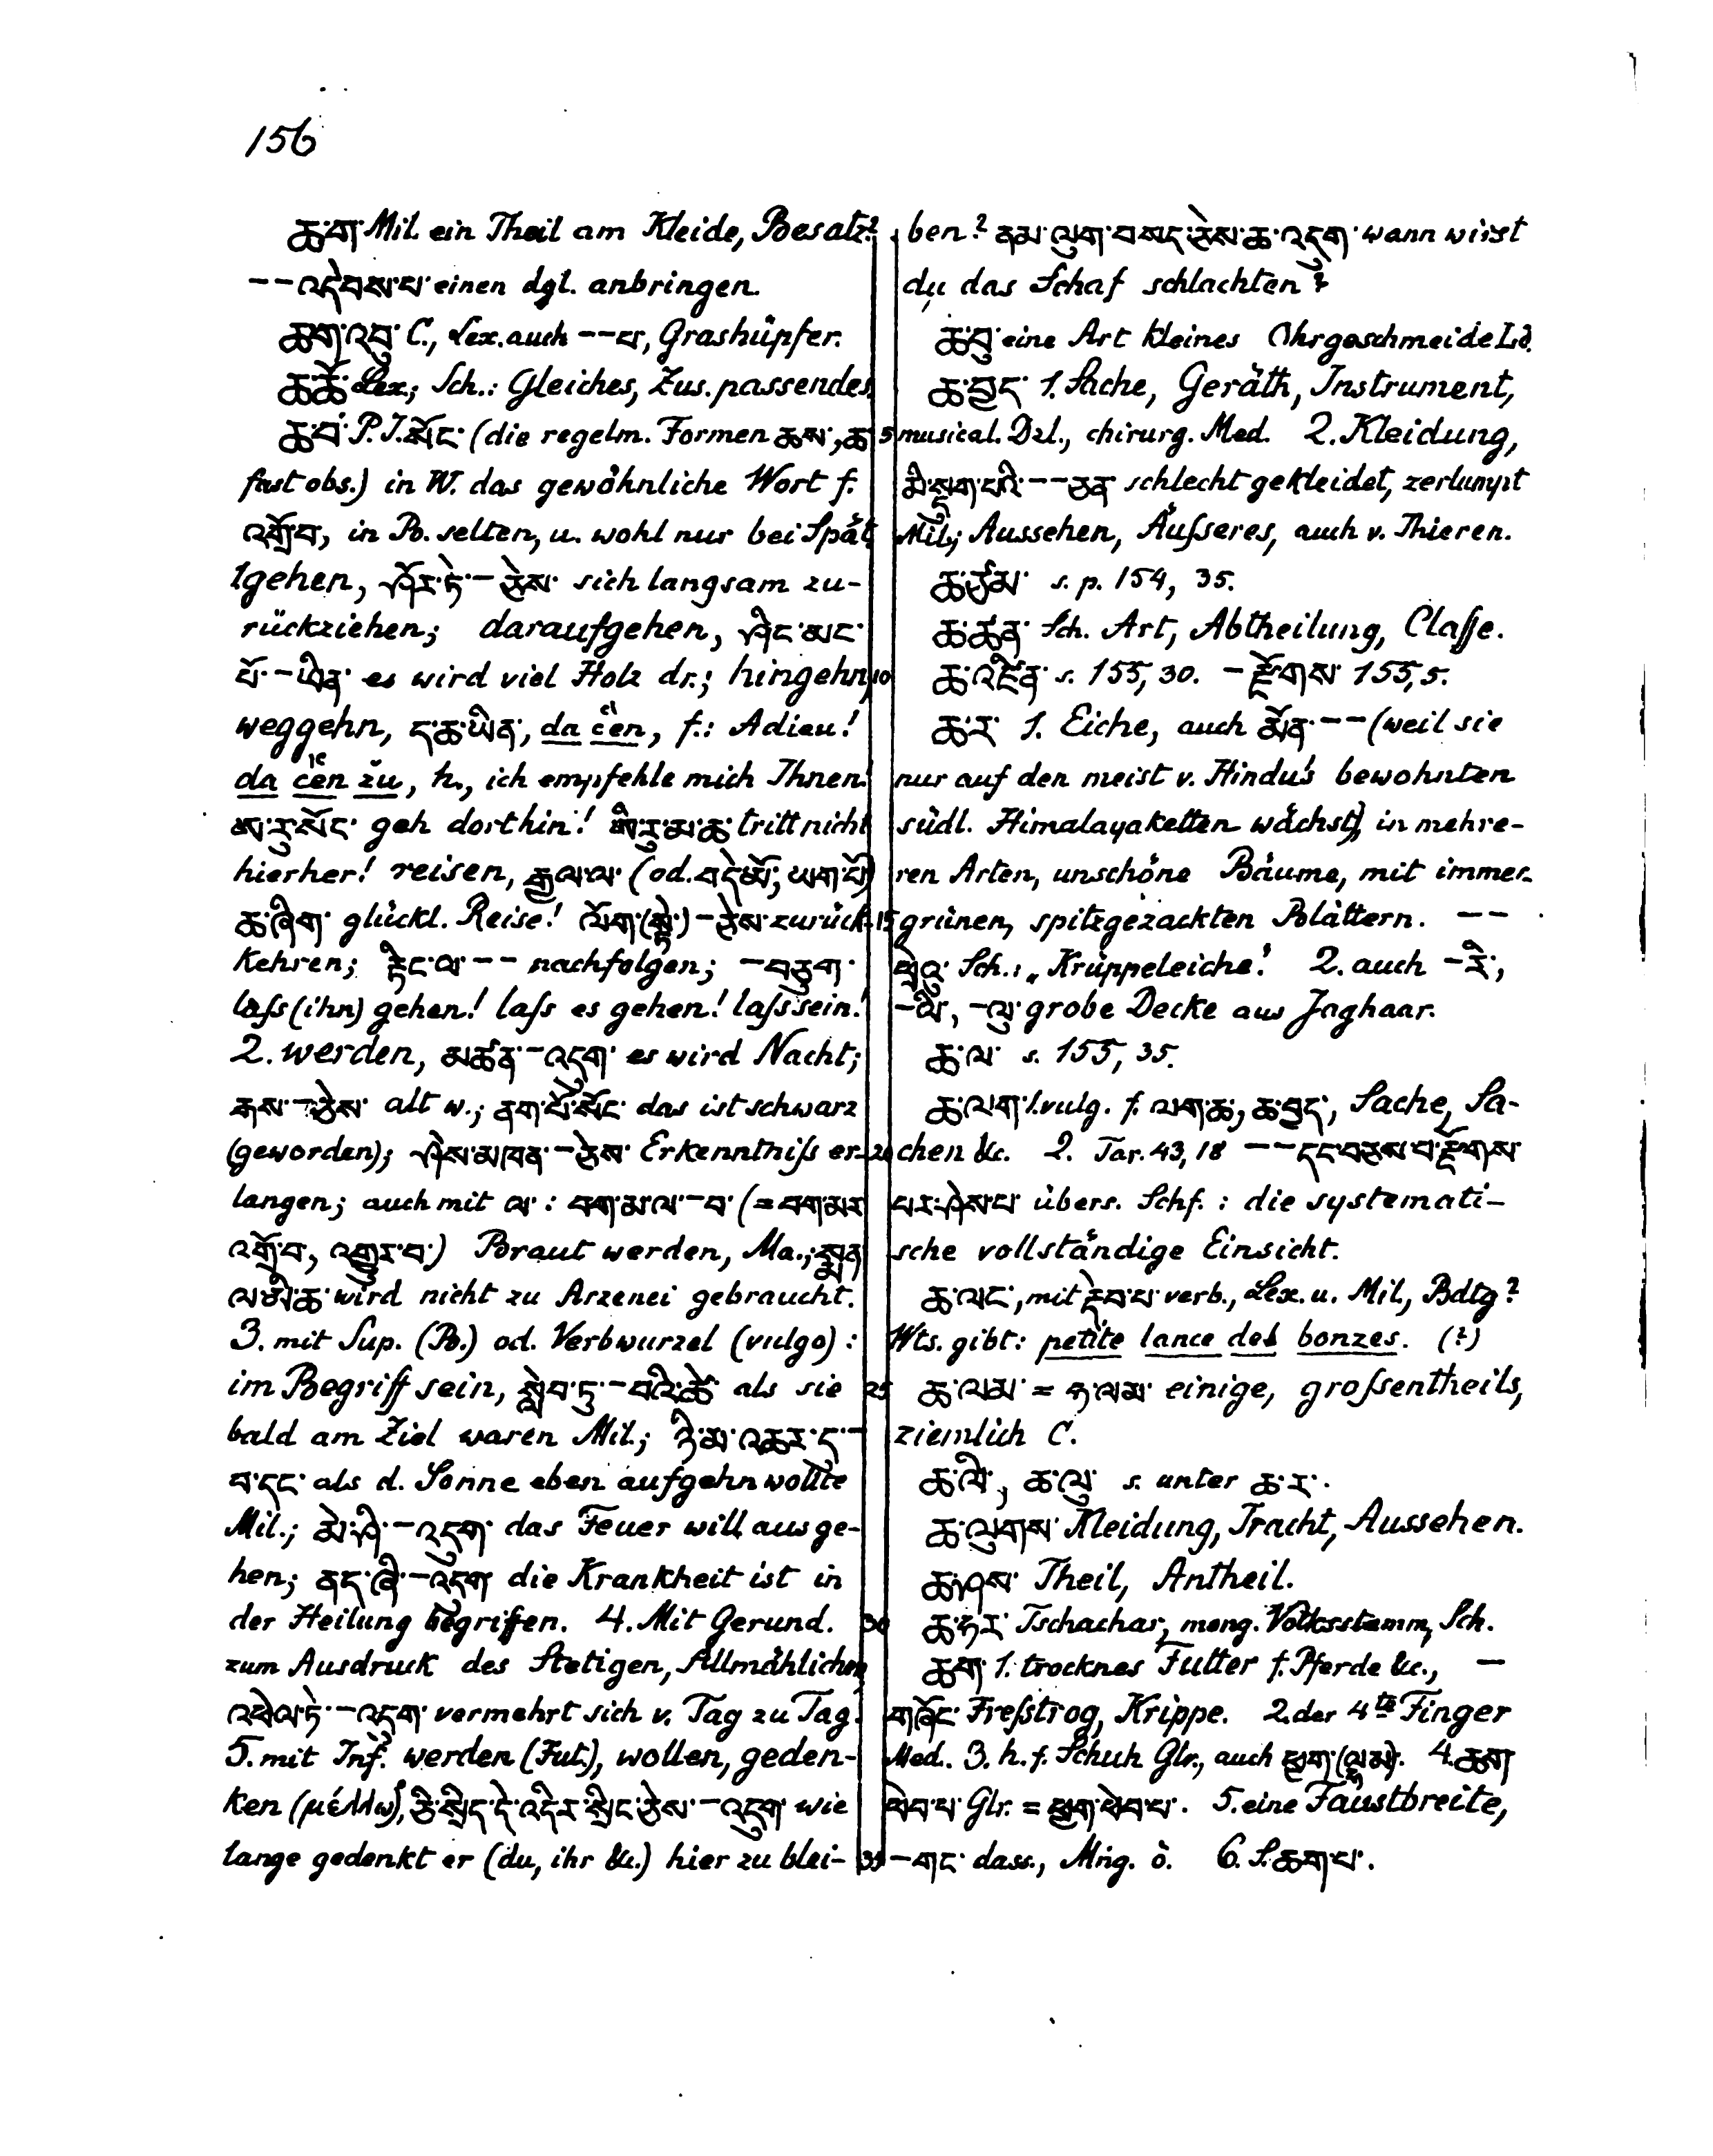 156
ཆ་ག་ Mil. ein Theil am Kleide, Besatz?
--འདེབས་པ་ einen dgl. anbringen.
ཆག་འབུ་ C., Lex. auch --པ, Grashüpfer.
ཆ་ཆོ་ Lex.; Sch.: Gleiches, Zus. passendes.
ཆ་བ་ P. I. སོང་ (die regelm. Formen ཆས་, ཆ་
fast obs.) in W. das gewöhnliche Wort f.
འགྲོ་བ, in B. selten, u. wohl nur bei Spät.
1 gehen, ཤོར་ཏེ་-ཅེས་ sich langsam zu-
rückziehen; daraufgehen, ཤིང་མང་
པོ་-ཡིན་ es wird viel Holz dr.; hingehn,
weggehn, ད་ཆ་ཡིན་, da c̀en, f.: Adieu!
da c̀en žu, h., ich empfehle mich Ihnen!
ཨ་རུ་སོང་ geh dorthin! ཨི་རུ་མ་ཆ་ tritt nicht
hierher! reisen, རྒྱལ་ལ་ (od. བདེ་མོ་, ཡག་པོ་)
ཆ་ཞིག་ glückl. Reise! ལོག་(སྟེ་)-ཅེས་ zurück-
kehren; རྟིང་ལ་-- nachfolgen; -བཅུག་
lass (ihn) gehen! lass es gehen! lass sein!
2. werden, མཚན་-འདུག་ es wird Nacht;
རྒས་-ཅེས་ alt w.; ནག་པོ་སོང་ das ist schwarz
(geworden); ཤེས་མཁན་-ཅེས་ Erkenntniss er-
langen; auch mit ལ་: བག་མ་ལ་-བ་ (= བག་མར་
འགྲོ་བ, འགྱུར་བ་) Braut werden, Ma.; སྨན་
ལ་མི་ཆ་ wird nicht zu Arzenei gebraucht.
3. mit Sup. (B.) od. Verbwurzel (vulgo):
im Begriff sein, སླེབ་ཏུ་-བའི་ཚེ་ als sie
bald am Ziel waren Mil.; ཉི་མ་འཆར་ད་-
བ་དང་ als d. Sonne eben aufgehn wollte
Mil.; མེ་ཤི་-འདུག་ das Feuer will ausge-
hen; ནད་ཞི་-འདུག die Krankheit ist in
der Heilung begriffen. 4. Mit Gerund.
zum Ausdruck des Stetigen, Allmählichen,
འཕེལ་ཏེ་-འདུག་ vermehrt sich v. Tag zu Tag.
5. mit Inf. werden (Fut.), wollen, geden-
ken (μέλλω), ཅི་སྲིད་དེ་འདིར་སྲིང་ཅེས་-འདུག་ wie
lange gedenkt er (du, ihr &c.) hier zu blei-
5
10
15
20
25
30
35
ben? ནམ་ལུག་བསད་ཅེས་ཆ་འདུག་ wann wirst
du das Schaf schlachten?
ཆ་བུ་ eine Art kleines Ohrgeschmeide Ld.
ཆ་བྱད་ 1. Sache, Geräth, Instrument,
musical. Dzl., chirurg. Med. 2. Kleidung,
མི་སྡུག་པའི་--ཅན་ schlecht gekleidet, zerlumpt
Mil.; Aussehen, Äusseres, auch v. Thieren.
ཆ་ཙམ་ s. p. 154, 35.
ཆ་ཚན་ Sch. Art, Abtheilung, Classe.
ཆ་འཛིན་ s. 155, 30. -རྫོགས་ 155, 5.
ཆ་ར་ 1. Eiche, auch མོན་-- (weil sie
nur auf den meist v. Hindu's bewohnten
südl. Himalayaketten wächst), in mehre-
ren Arten, unschöne Bäume, mit immer-
grünen, spitzgezackten Blättern. --
ཕྲེའུ་ Sch.: „Krüppeleiche." 2. auch -རི་,
-ལི་, -ལུ་ grobe Decke aus Jaghaar.
ཆ་ལ་ s. 155, 35.
ཆ་ལག་ 1. vulg. f. ལག་ཆ་, ཆ་བྱད་, Sache, Sa-
chen &c. 2. Tar. 43, 18 --དང་བཅས་བ་རྫོགས་
པར་ཤེས་པ་ übers. Schf.: die systemati-
sche vollständige Einsicht.
ཆ་ལང་, mit རྡེབ་པ་ verb., Lex. u. Mil., Bdtg?
Wts. gibt: petite lance des bonzes. (?)
ཆ་ལམ་ = ཧ་ལམ་ einige, grossentheils,
ziemlich C.
ཆ་ལི་, ཆ་ལུ་ s. unter ཆ་ར་.
ཆ་ལུགས་ Kleidung, Tracht, Aussehen.
ཆ་ཤས་ Theil, Antheil.
ཆ་ཧར་ Tschachar, mong. Volksstamm, Sch.
ཆག་ 1. trocknes Futter f. Pferde &c., -
གཞོང་ Fresstrog, Krippe. 2. der 4te Finger
Med. 3. h. f. Schuh Glr., auch ཕྱག་(ལྷམ་). 4. ཆག་
ཕེབ་པ་ Glr. = ཕྱག་ཕེབ་པ་. 5. eine Faustbreite,
-གང་ dass., Mng. ö. 6. S. ཆག་པ་.